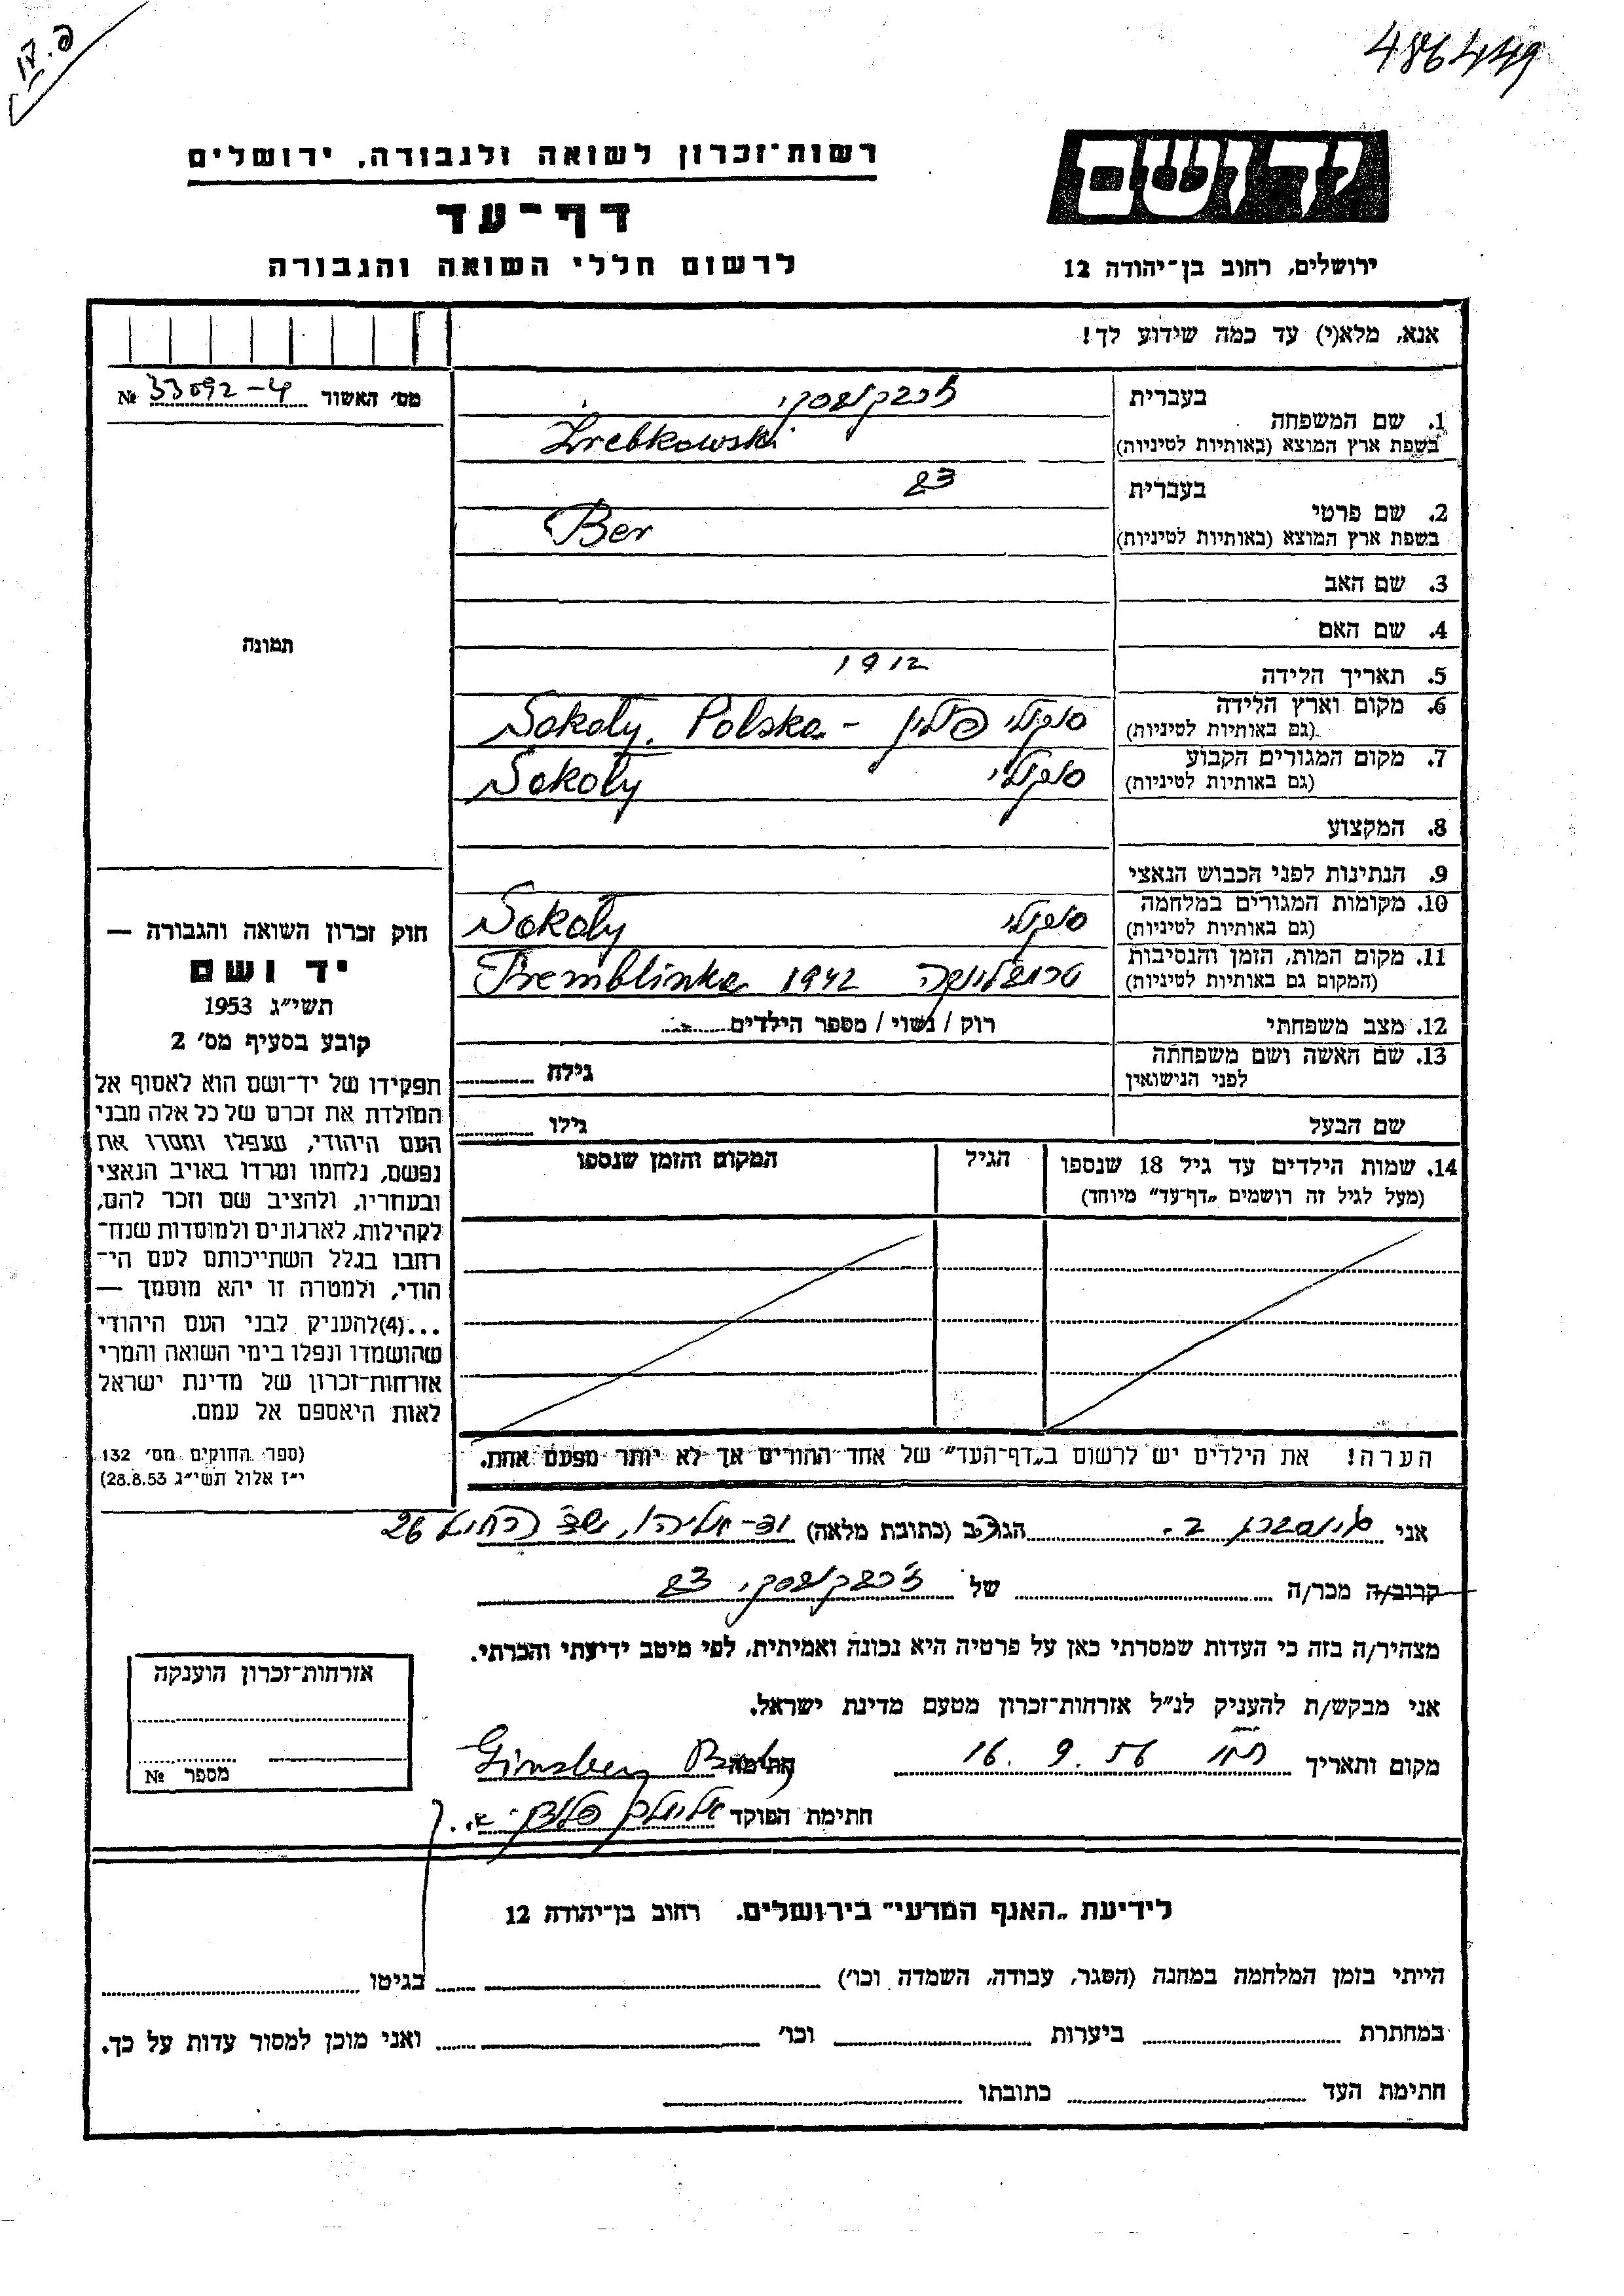 486449
יד ושם
רשות־זכרון לשואה ולגבורה, ירושלים
דף־עד
לרשום חללי השואה והגבורה
ירושלים, רחוב בן־יהודה 12
אנא, מלא(י) עד כמה שידוע לך!
מס׳ האשור № 33092-4
תמונה
1. שם המשפחה
בעברית ז׳רבקובסקי
בשפת ארץ המוצא (באותיות לטיניות) Żrebkowski
2. שם פרטי
בעברית בר
בשפת ארץ המוצא (באותיות לטיניות) Ber
3. שם האב
4. שם האם
5. תאריך הלידה 1912
6. מקום וארץ הלידה
(גם באותיות לטיניות) סוקולי פולין - Sokoly, Polska
7. מקום המגורים הקבוע
(גם באותיות לטיניות) סוקולי Sokoly
8. המקצוע
9. הנתינות לפני הכבוש הנאצי
10. מקומות המגורים במלחמה
(גם באותיות לטיניות) סוקולי Sokoly
11. מקום המות, הזמן והנסיבות
(המקום גם באותיות לטיניות) טרמבלינקה 1942 Tremblinka
12. מצב משפחתי רוק / נשוי / מספר הילדים
13. שם האשה ושם משפחתה
לפני הנישואין גילה
שם הבעל גילו
14. שמות הילדים עד גיל 18 שנספו
(מעל לגיל זה רושמים „דף־עד״ מיוחד)
הגיל
המקום והזמן שנספו
הערה! את הילדים יש לרשום ב„דף־העד״ של אחד ההורים אך לא יותר מפעם אחת.
חוק זכרון השואה והגבורה —
יד ושם
תשי״ג 1953
קובע בסעיף מס׳ 2
תפקידו של יד־ושם הוא לאסוף אל
המולדת את זכרם של כל אלה מבני
העם היהודי, שנפלו ומסרו את
נפשם, נלחמו ומרדו באויב הנאצי
ובעוזריו, ולהציב שם וזכר להם,
לקהילות, לארגונים ולמוסדות שנח־
רבו בגלל השתייכותם לעם הי־
הודי, ולמטרה זו יהא מוסמך —
...(4)להעניק לבני העם היהודי
שהושמדו ונפלו בימי השואה והמרי
אזרחות־זכרון של מדינת ישראל
לאות היאספם אל עמם.
(ספר החוקים מס׳ 132
י״ז אלול תשי״ג 28.8.53)
אני גינסברג ב. הגר/ב (כתובת מלאה) יד-אליהו, 26
קרוב/ה מכר/ה של ז׳רבקובסקי, בר
מצהיר/ה בזה כי העדות שמסרתי כאן על פרטיה היא נכונה ואמיתית, לפי מיטב ידיעתי והכרתי.
אני מבקש/ת להעניק לנ״ל אזרחות־זכרון מטעם מדינת ישראל.
מקום ותאריך 16. 9. 56 חתימה Ginsberg
חתימת הפוקד
אזרחות־זכרון הוענקה
מספר №
לידיעת „האגף המדעי״ בירושלים, רחוב בן־יהודה 12
הייתי בזמן המלחמה במחנה (הסגר, עבודה, השמדה וכו׳) בגיטו
במחתרת ביערות וכו׳ ואני מוכן למסור עדות על כך.
חתימת העד כתובתו